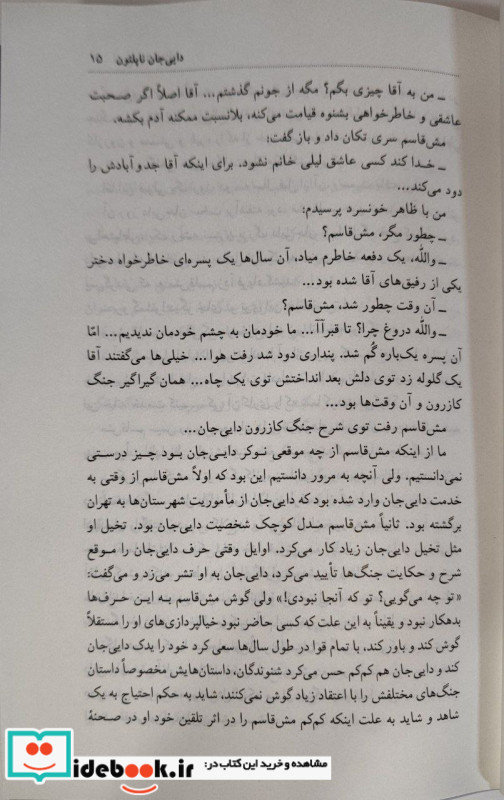 دایی‌جان ناپلئون    ۱۵
ـ من به آقا چیزی بگم؟ مگه از جونم گذشتم... آقا اصلاً اگر صحبت
عاشقی و خاطرخواهی بشنوه قیامت می‌کنه، بلانسبت ممکنه آدم بکشه.
مش‌قاسم سری تکان داد و باز گفت:
ـ خدا کند کسی عاشق لیلی خانم نشود. برای اینکه آقا جدوآبادش را
دود می‌کند...
من با ظاهر خونسرد پرسیدم:
ـ چطور مگر، مش‌قاسم؟
ـ واللّه، یک دفعه خاطرم میاد، آن سال‌ها یک پسره‌ای خاطرخواه دختر
یکی از رفیق‌های آقا شده بود...
ـ آن وقت چطور شد، مش‌قاسم؟
ـ واللّه دروغ چرا؟ تا قبرآآ... ما خودمان به چشم خودمان ندیدیم... امّا
آن پسره یک‌باره گُم شد. پنداری دود شد رفت هوا... خیلی‌ها می‌گفتند آقا
یک گلوله زد توی دلش بعد انداختش توی یک چاه... همان گیراگیر جنگ
کازرون و آن وقت‌ها بود...
مش‌قاسم رفت توی شرح جنگ کازرون دایی‌جان...
ما از اینکه مش‌قاسم از چه موقعی نوکر دایی‌جان بود چیز درستی
نمی‌دانستیم. ولی آنچه به مرور دانستیم این بود که اولاً مش‌قاسم از وقتی به
خدمت دایی‌جان وارد شده بود که دایی‌جان از مأموریت شهرستان‌ها به تهران
برگشته بود. ثانیاً مش‌قاسم مدل کوچک شخصیت دایی‌جان بود. تخیل او
مثل تخیل دایی‌جان زیاد کار می‌کرد. اوایل وقتی حرف دایی‌جان را موقع
شرح و حکایت جنگ‌ها تأیید می‌کرد، دایی‌جان به او تشر می‌زد و می‌گفت:
«تو چه می‌گویی؟ تو که آنجا نبودی!» ولی گوش مش‌قاسم به این حرف‌ها
بدهکار نبود و یقیناً به این علت که کسی حاضر نبود خیالپردازی‌های او را مستقلاً
گوش کند و باور کند، با تمام قوا در طول سال‌ها سعی کرد خود را یدک دایی‌جان
کند و دایی‌جان هم کم‌کم حس می‌کرد شنوندگان، داستان‌هایش مخصوصاً داستان
جنگ‌های مختلفش را با اعتقاد زیاد گوش نمی‌کنند، شاید به حکم احتیاج به یک
شاهد و شاید به علت اینکه کم‌کم مش‌قاسم را در اثر تلقین خود او در صحنهٔ
مشاهده و خرید این کتاب در:
iidebook.ir